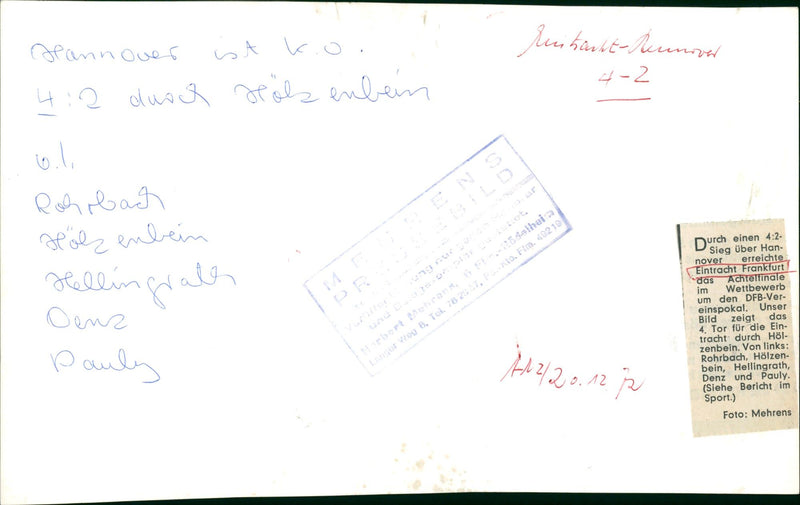 Hannover ist k.o.
4:2 durch Hölzenbein
v.l.
Rohrbach
Hölzenbein
Hellingrath
Denz
Pauly
Eintracht-Hannover
4-2
MEHRENS
PRESSEBILD
Herbert Mehrens, 6 Ffm.
20.12.72
Durch einen 4:2-
Sieg über Han-
nover erreichte
Eintracht Frankfurt
das Achtelfinale
im Wettbewerb
um den DFB-Ver-
einspokal. Unser
Bild zeigt das
4. Tor für die Ein-
tracht durch Höl-
zenbein. Von links:
Rohrbach, Hölzen-
bein, Hellingrath,
Denz und Pauly.
(Siehe Bericht im
Sport.)
Foto: Mehrens